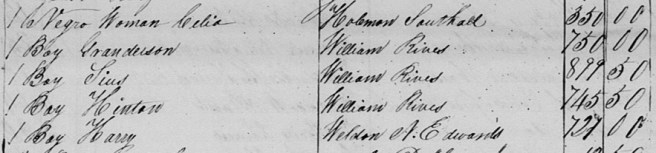 1 Negro Woman Celia Holemon Southall 350 00
1 Boy Granderson William Rives 750 00
1 Boy William Rives 899 50
1 Boy Hinton William Rives 745 50
1 Boy Harry Weldon N. Edwards 727 00